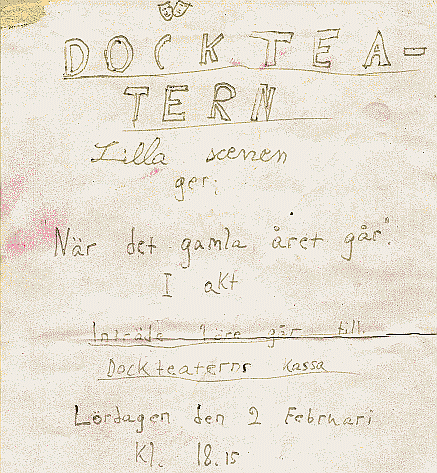 DOCKTEA-
TERN
Lilla scenen
ger:
"När det gamla året går".
I akt
Inträde 1öre går till
Dockteaterns kassa
Lördagen den 2 Februari
Kl. 18.15